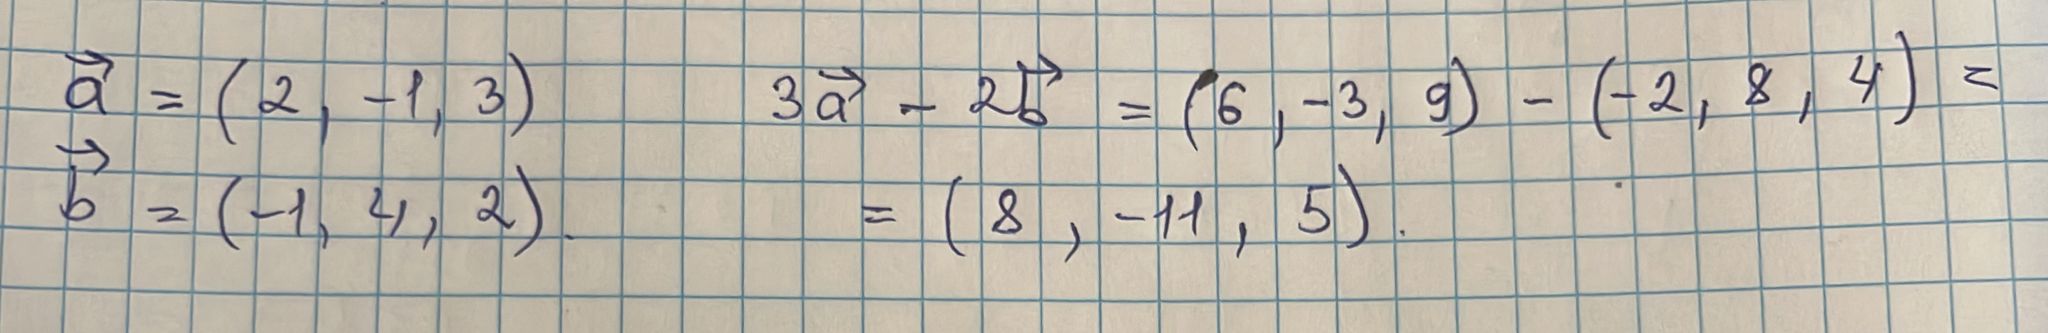 a⃗ = (2, -1, 3)
b⃗ = (-1, 4, 2).
3a⃗ - 2b⃗ = (6, -3, 9) - (-2, 8, 4) =
= (8, -11, 5).